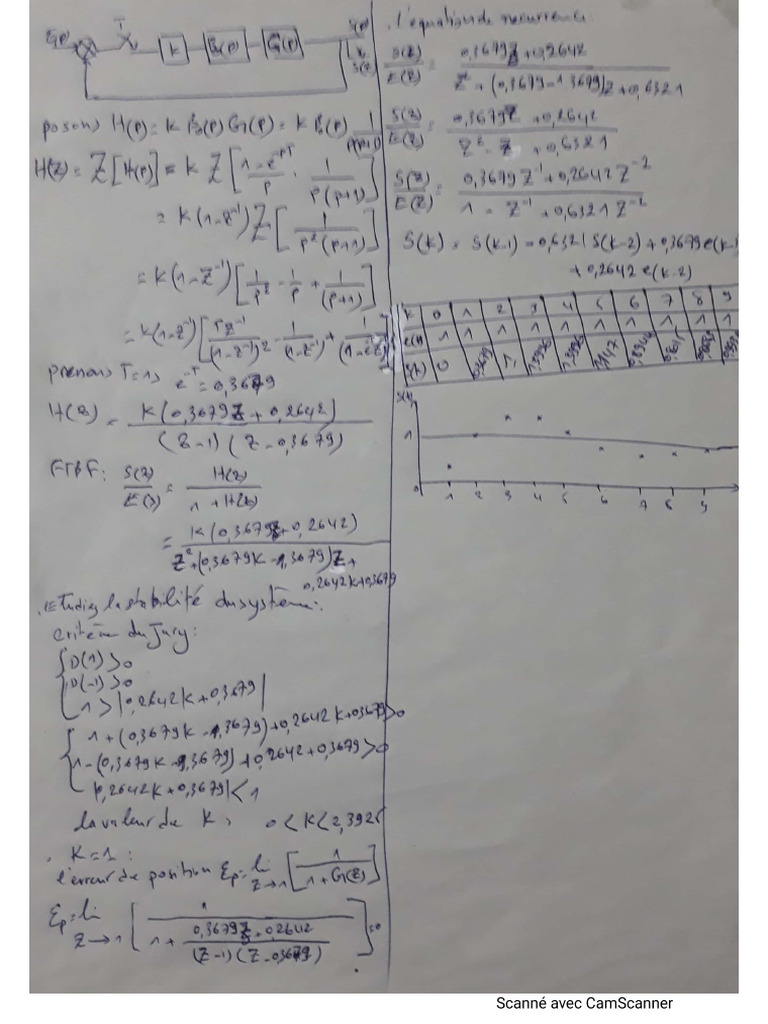 E(p)
T
K
B₀(p)
G(p)
S(p)
S(z)
posons H(p) = K B₀(p) G(p) = K B₀(p) 1/(p(p+1))
H(z) = Z[H(p)] = K Z[(1-e^-pT)/p . 1/(p(p+1))]
= K(1-z⁻¹) Z[1/(p²(p+1))]
= K(1-z⁻¹)[1/p² - 1/p + 1/(p+1)]
= K(1-z⁻¹)[Tz⁻¹/(1-z⁻¹)² - 1/(1-z⁻¹) +
prenons T=1s e^-T = 0,3679
H(z) = K(0,3679z + 0,2642)/((z-1)(z-0,3679))
FTBF: S(z)/E(z) = H(z)/(1+H(z))
= K(0,3679z+0,2642)/(z²+(0,3679K-1,3679)z+
0,2642K+0,3679
la stabilité du système:
critère du Jury:
D(1)>0
D(-1)>0
1>|0,2642K+0,3679|
1+(0,3679K-1,3679)+0,2642K+0,3679>0
1-(0,3679K-1,3679)+0,2642+0,3679>0
|0,2642K+0,3679|<1
la valeur de K: 0<K<2,392
. K=1:
l'erreur de position Ep = lim z→1 [1/(1+G(z))]
Ep = lim z→1 [1/(1+(0,3679z+0,2642)/((z-1)(z-0,3679)))] = 0
. l'équation de recurrence:
S(z)/E(z) = (0,3679z+0,2642)/(z²+(0,3679-1,3679)z+0,6321)
S(z)/E(z) = (0,3679z+0,2642)/(z²-z+0,6321)
S(z)/E(z) = (0,3679z⁻¹+0,2642z⁻²)/(1-z⁻¹+0,6321z⁻²)
S(k) = S(k-1) - 0,6321 S(k-2) + 0,3679 e(k-
+ 0,2642 e(k-2)
K 0 1 2 3 4 5 6 7 8 9
1 1 1 1 1 1 1 1 1 1
S(k) 0 0,3679 1,
S(k)
1
0 1 2 3 4 5 6 7 8 9
Scanné avec CamScanner